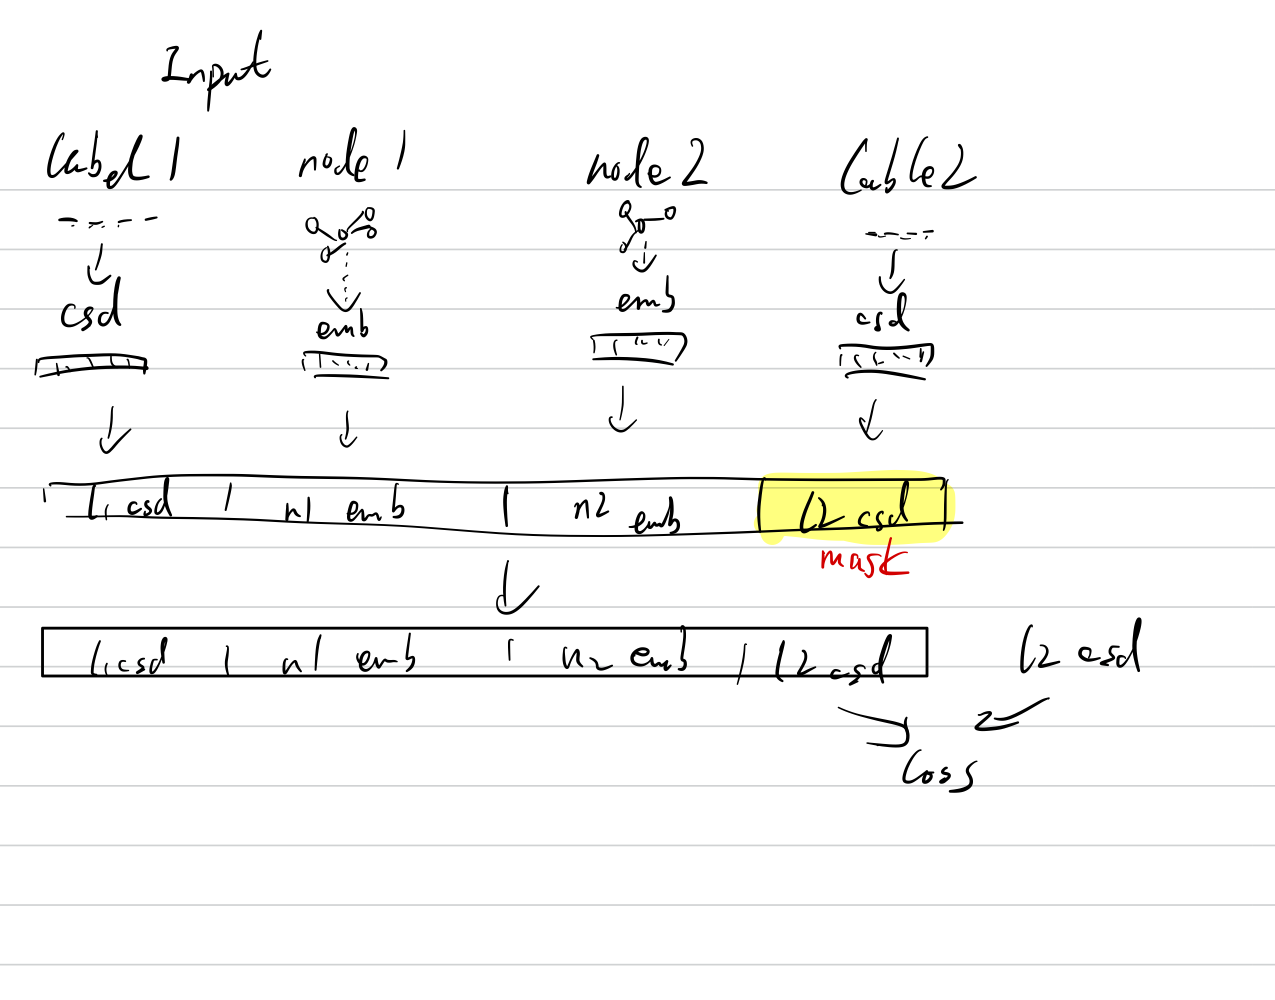 Input
Label 1 node 1 node 2 Lable2
csd emb emb csd
L1 csd | n1 emb | n2 emb | L2 csd
mask
L1 csd | n1 emb | n2 emb | L2 csd L2 csd
Loss